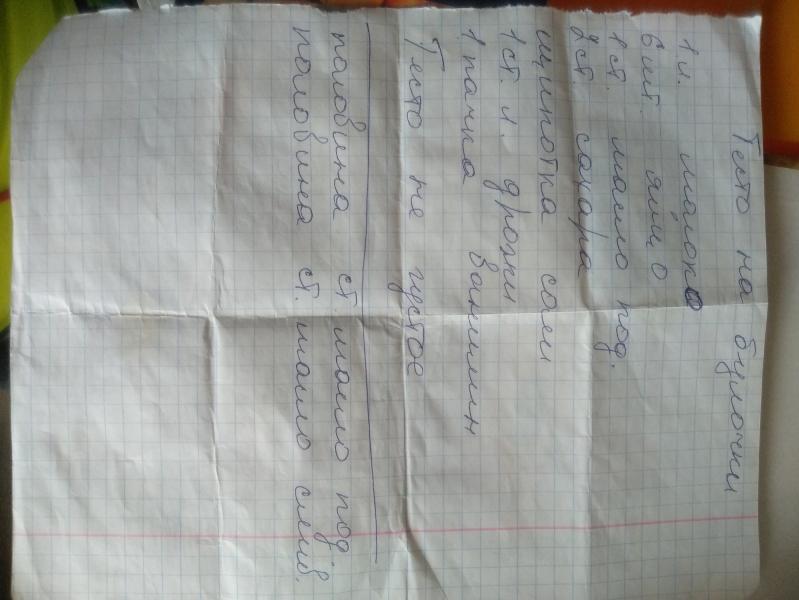 Тесто на булочки
1 л. молоко
6 шт. яйцо
1 ст. масло под.
2 ст. сахара
щипотка соли
1 ст. л. дрожжи
1 пачка ванилин
Тесто не густое
половина ст. масло под.
половина ст. масло слив.